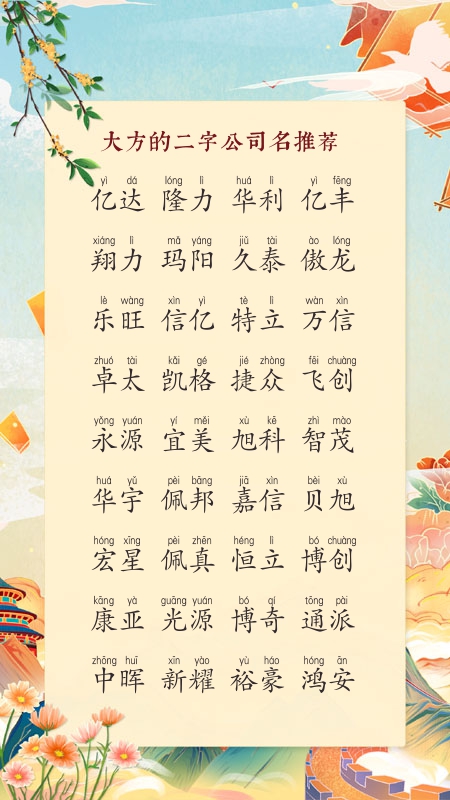 大方的二字公司名推荐
yì dá lóng lì huá lì yì fēng
亿达 隆力 华利 亿丰
xiáng lì mǎ yáng jiǔ tài ào lóng
翔力 玛阳 久泰 傲龙
lè wàng xìn yì tè lì wàn xìn
乐旺 信亿 特立 万信
zhuó tài kǎi gé jié zhòng fēi chuàng
卓太 凯格 捷众 飞创
yǒng yuán yí měi xù kē zhì mào
永源 宜美 旭科 智茂
huá yǔ pèi bāng jiā xìn bèi xù
华宇 佩邦 嘉信 贝旭
hóng xīng pèi zhēn héng lì bó chuàng
宏星 佩真 恒立 博创
kāng yà guāng yuán bó qí tōng pài
康亚 光源 博奇 通派
zhōng huī xīn yào yù háo hóng ān
中晖 新耀 裕豪 鸿安